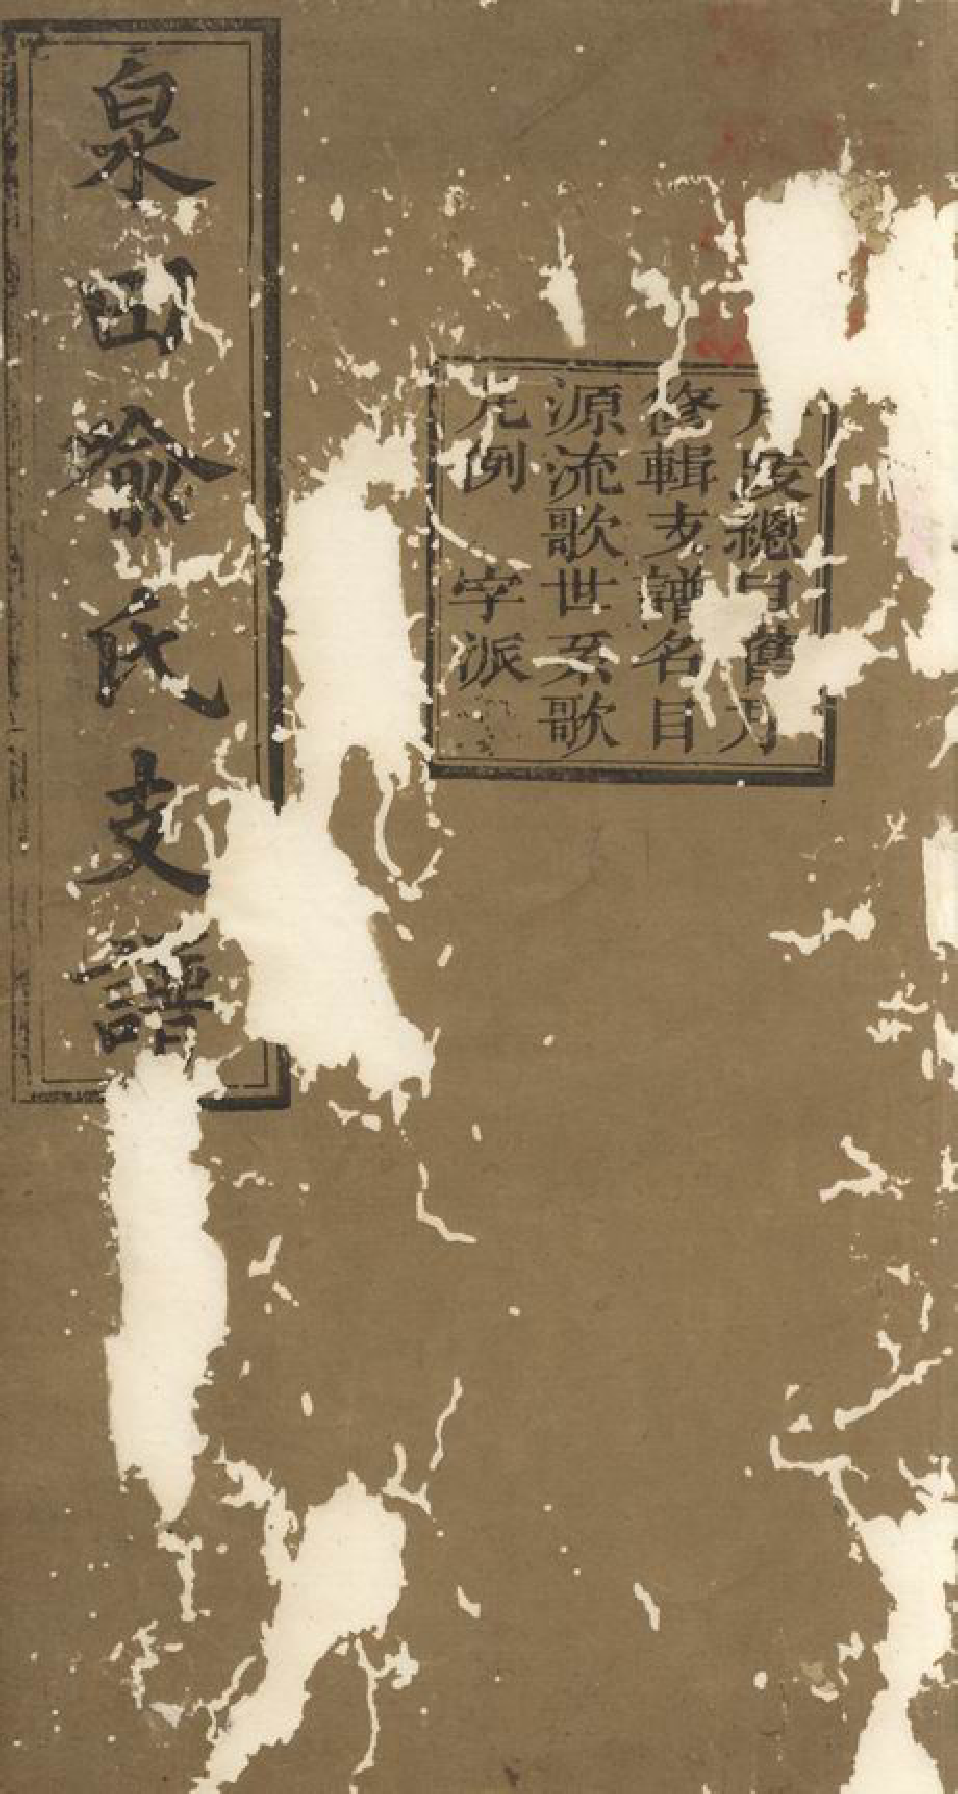 跋總目舊
修輯支譜名目
源流歌世系歌
凡例 字派
泉田俞氏支譜